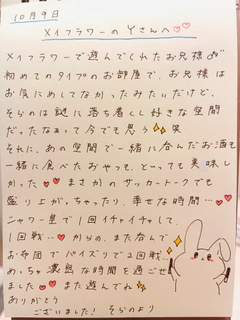 10月9日
メイフラワーのYさんへ
メイフラワーで遊んでくれたお兄様
初めてのタイプのお部屋で、お兄様は
お気にめしてなかったみたいだけど、
そらのは謎に落ち着くし好きな空間
だったなぁって今でも思う 笑
それに、あの空間で一緒に呑んだお酒も
一緒に食べたおやつも、とっても美味し
かった まさかのサッカートークでも
盛り上がっちゃったり、幸せな時間…
シャワー室で1回イチャイチャして、
1回戦… からの、また呑んで
お布団でパイズリで2回戦
めっちゃ濃島な時間を過ごせ
ました また遊んでね
ありがとう
ございました! そらのより